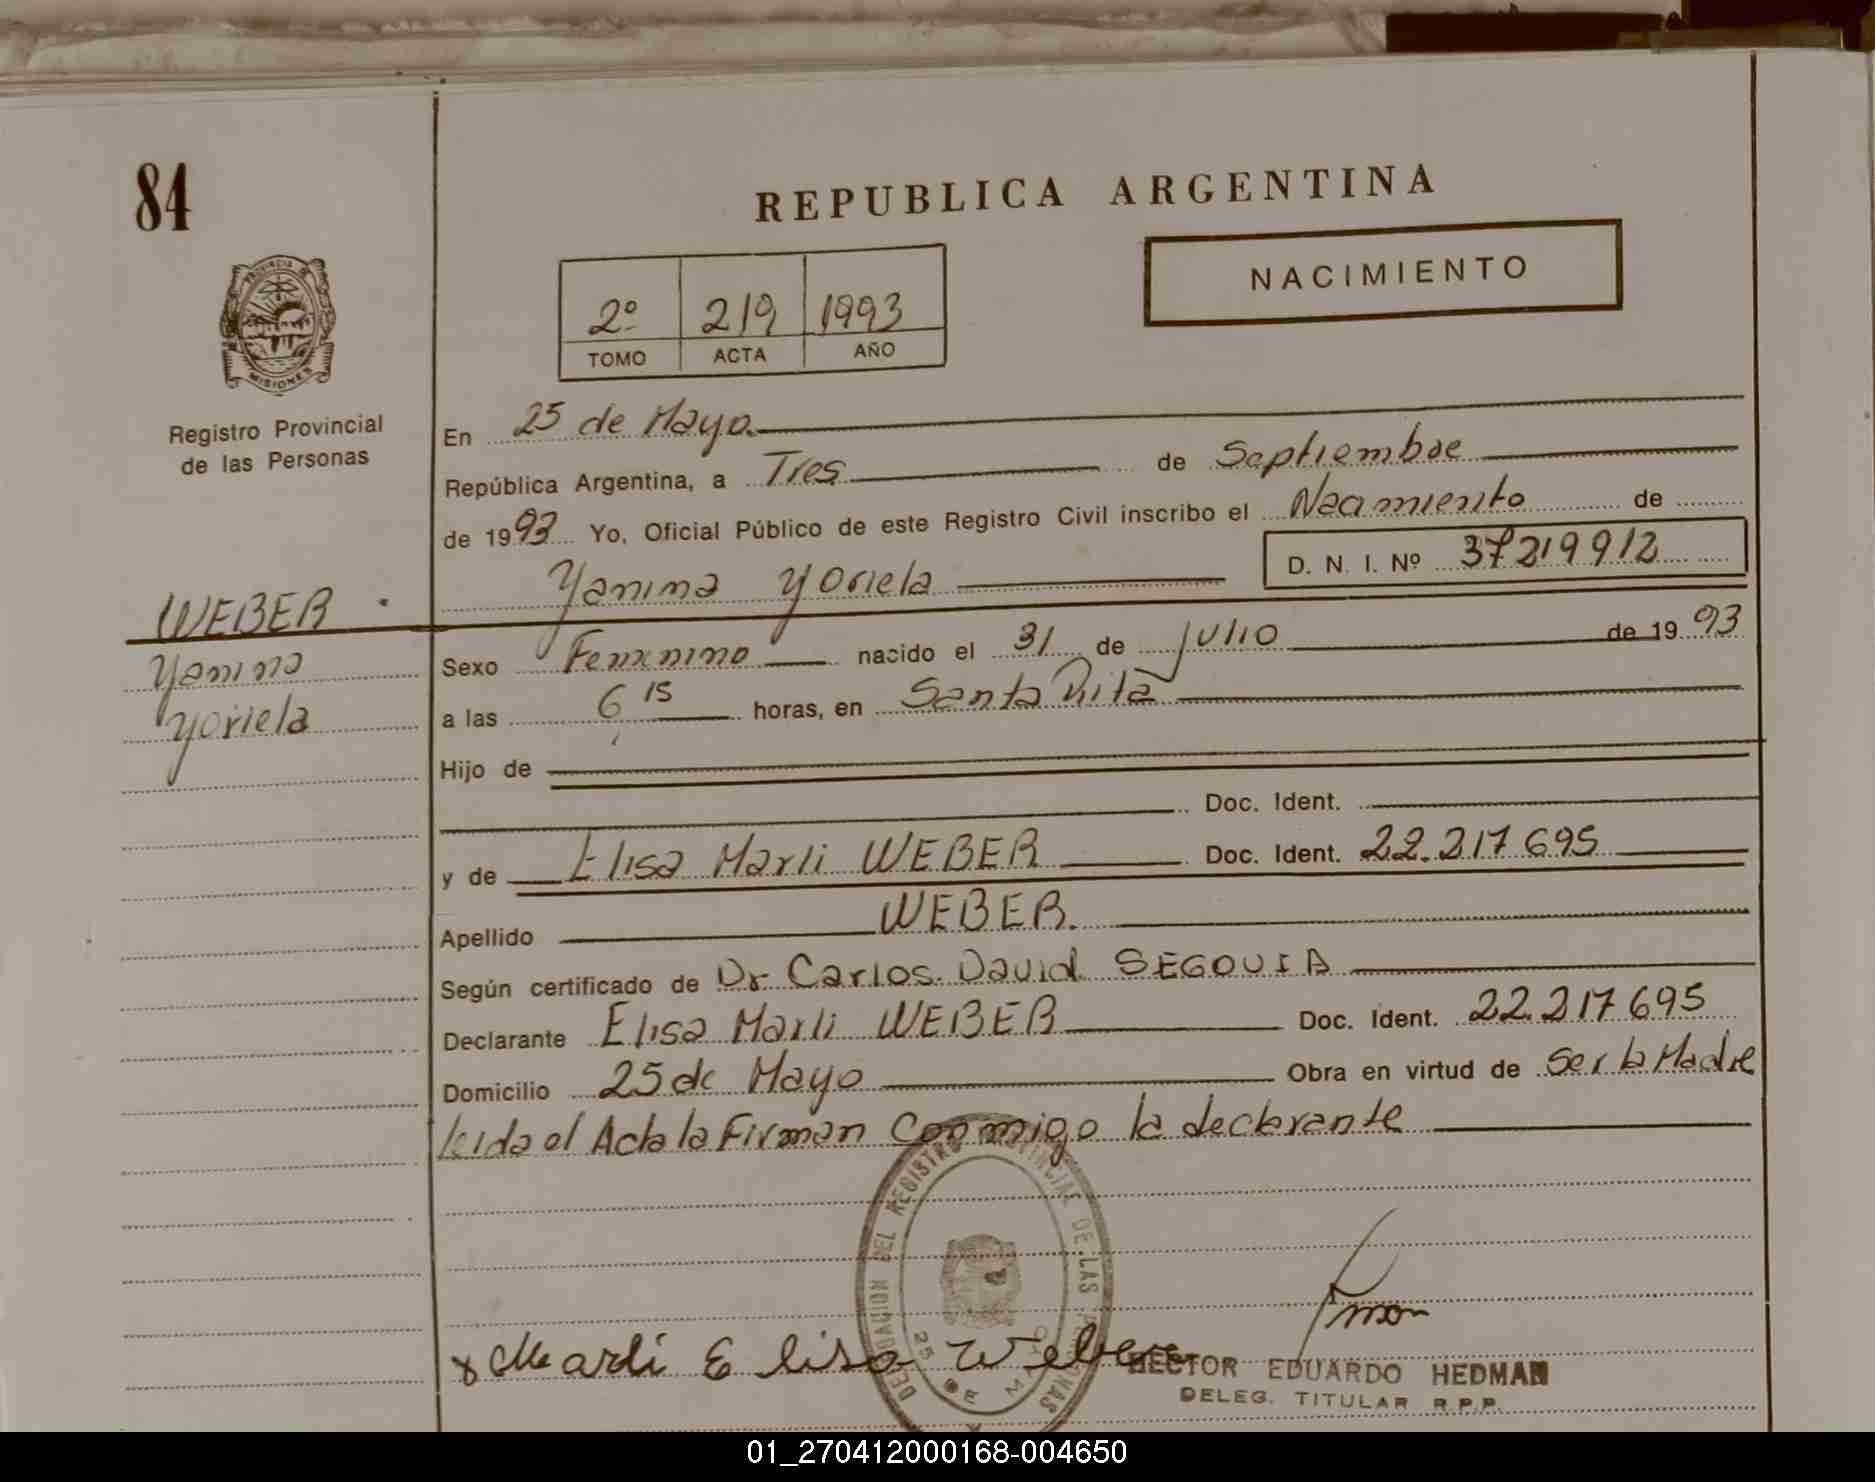 84
REPUBLICA ARGENTINA
NACIMIENTO
2º 219 1993
TOMO ACTA AÑO
PROVINCIA DE
MISIONES
Registro Provincial
de las Personas
WEBER
Yanina
Yoriela
En 25 de Mayo
República Argentina, a Tres de Septiembre
de 1993 Yo, Oficial Público de este Registro Civil inscribo el Nacimiento de
Yanina Yoriela D. N. I. Nº 37219912
Sexo Femenino nacido el 31 de Julio de 1993
a las 6 15 horas, en Santa Rita
Hijo de
Doc. Ident.
y de Elisa Marli WEBER Doc. Ident. 22.217695
Apellido WEBER.
Según certificado de Dr Carlos David SEGOVIA
Declarante Elisa Marli WEBER Doc. Ident. 22.217695
Domicilio 25 de Mayo Obra en virtud de Ser la Madre
leida el Acta la Firman Conmigo la declarante
DELEGACION DEL REGISTRO PROVINCIAL DE LAS PERSONAS
25 DE MAYO
x Marli Elisa Weber
HECTOR EDUARDO HEDMAN
DELEG. TITULAR R.P.P.
01_270412000168-004650